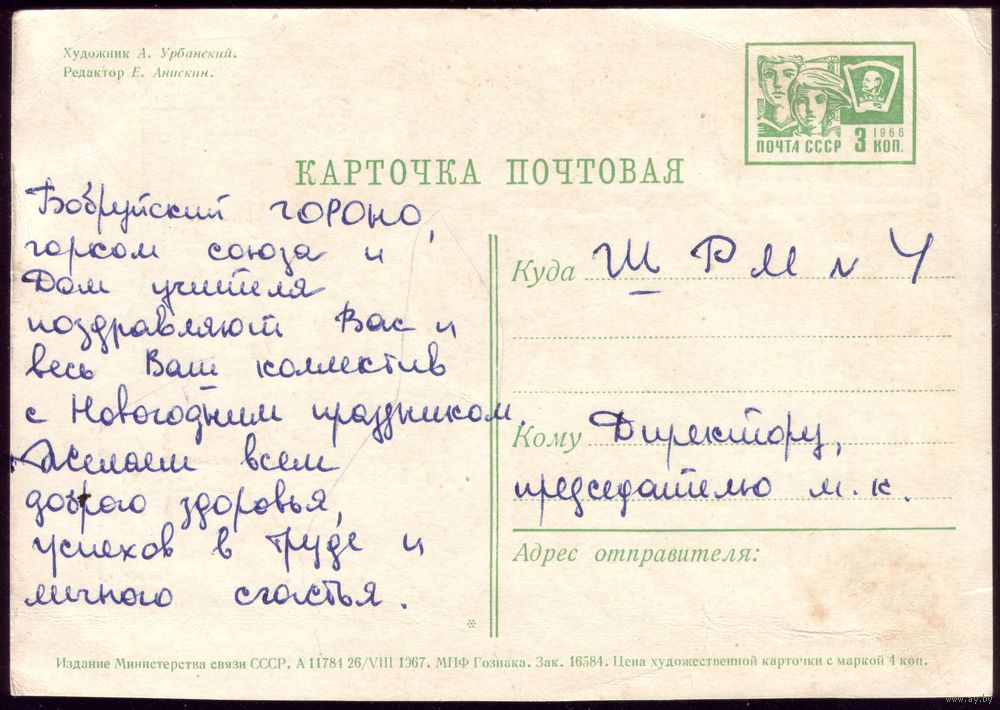 Художник А. Урбанский.
Редактор Е. Анискин.
ВЛКСМ
1966
ПОЧТА СССР 3 КОП.
КАРТОЧКА ПОЧТОВАЯ
Бобруйский ГОРОНО,
горком союза и
Дом учителя
поздравляют Вас и
весь Ваш коллектив
с Новогодним праздником.
Желаем всем
доброго здоровья,
успехов в труде и
личного счастья.
Куда Ш Р М N 4
Кому Директору,
председателю м.к.
Адрес отправителя:
*
Издание Министерства связи СССР. А 11784 26/VIII 1967. МПФ Гознака. Зак. 16584. Цена художественной карточки с маркой 4 коп.
www.ay.by